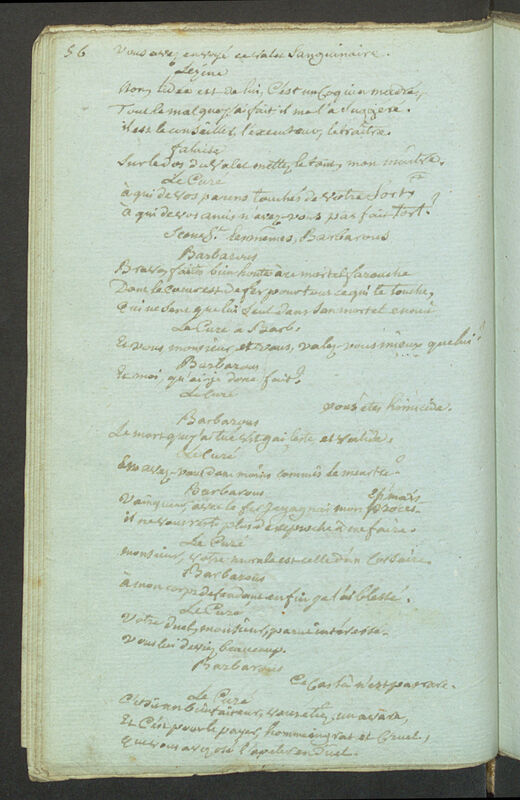 56
Vous avez envoyé ce valet Sanguinaire.
Lezine
Non, l'idée est de lui, C'est un Coquin madré,
Tout le mal que j'ai fait il me l'a Suggéré.
il est le conseiller, l'executeur, le traître.
falaise
Sur le dos du valet mettez le tout, mon maître.
Le Curé
à qui de vos parens touchés de votre Sort
à qui de vos amis n'avez-vous pas fait tort?
Scene 5e. Les mêmes, Barbarous
Barbarous
Bravo, faites bien honte à ce mortel farouche
Dont le Coeur est de fer pour tous ce qui le touche,
Qui ne Sent que lui Seul dans Son mortel ennui
Le Curé à Barb.
Et vous monsieur, et vous, valez-vous mieux que lui?
Barbarous
Et moi, qu'ai-je donc fait?
Le Curé
vous êtes homicide.
Barbarous
Le mort que j'ai tué est gai, leste et valide.
Le Curé
En avez-vous donc moins commis le meurtre?
Barbarous
Eh mais
Vainqueur avec le fer je gagnai mon procès
il ne vous reste plus de reproche à me faire.
Le Curé
monsieur, votre morale est celle d'un Corsaire.
Barbarous
à mon corps défendant enfin je l'ai blessé.
Le Curé
Votre duel, monsieur, parut intéressé.
Vous lui deviez beaucoup.
Barbarous
Ce Cas là n'est pas rare.
Le Curé
C'était un bienfaiteur, vous étiez un avare,
Et C'est pour le payer, homme ingrat et Cruel,
Que vous avez osé l'apeler en duel.